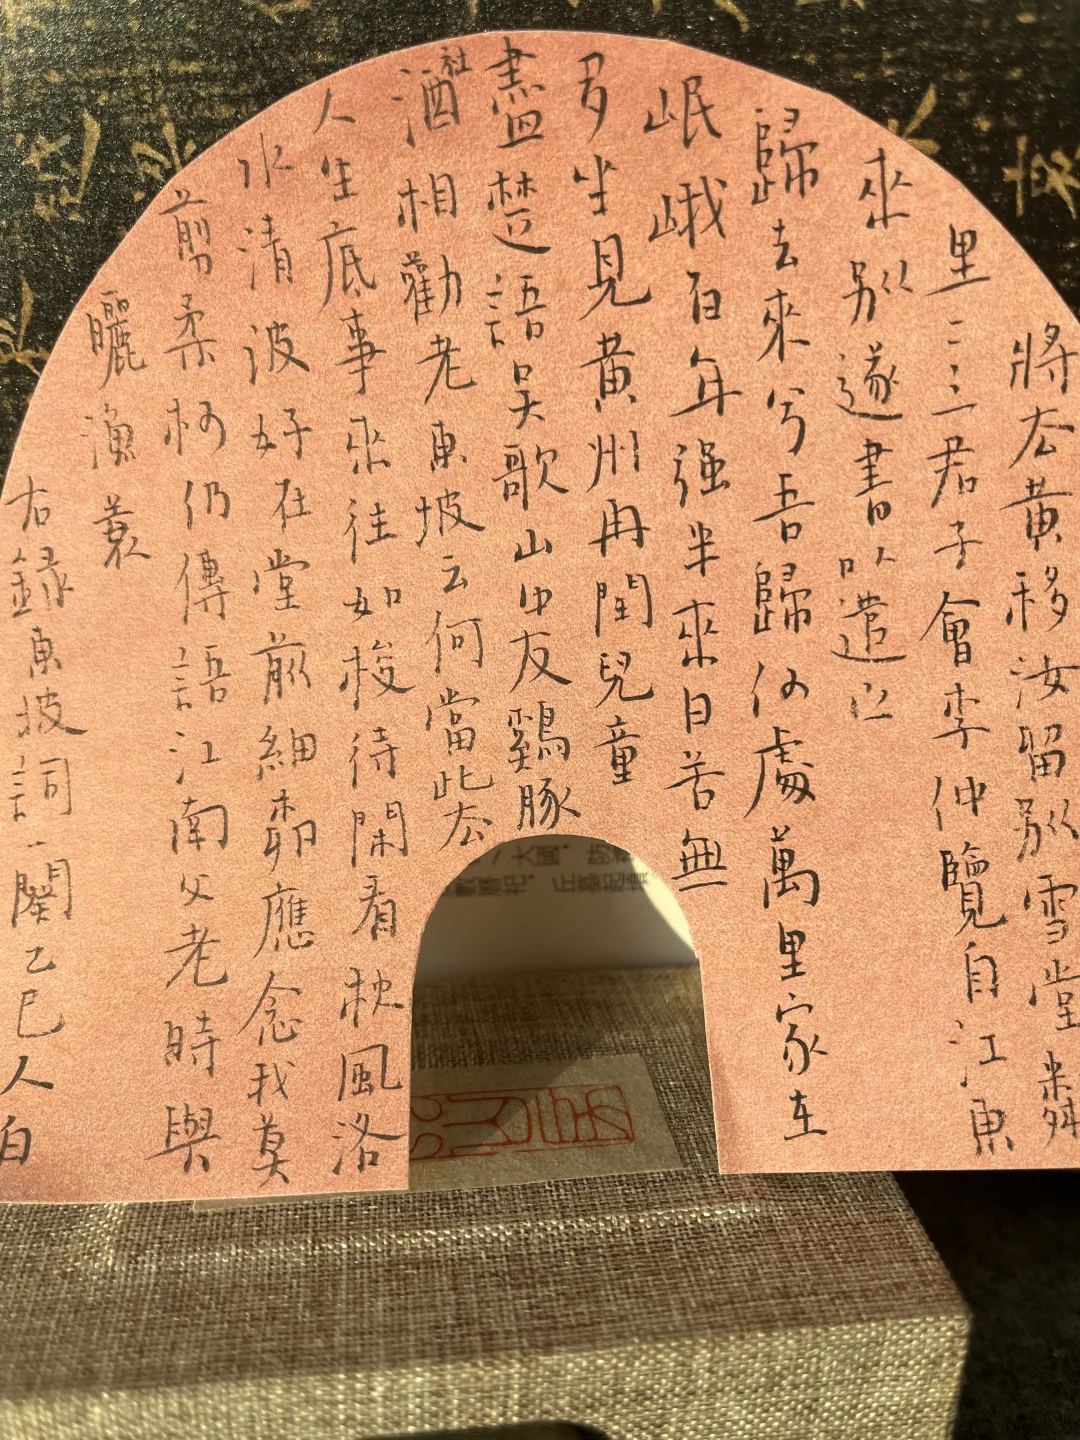 將厺黃移汝留別雪堂鄰
里二三君子會李仲覽自江東
來別遂書以遺之
歸去來兮吾歸何處萬里家在
岷峨百年强半來日苦無
多坐見黃州再閏兒童
盡楚語吳歌山中友鷄豚
社酒相勸老東坡云何當此厺
人生底事來往如梭待閑看秋風洛
水清波好在堂前細柳應念我莫
剪柔柯仍傳語江南父老時與
曬漁蓑
右錄東坡詞一闋乙巳人白